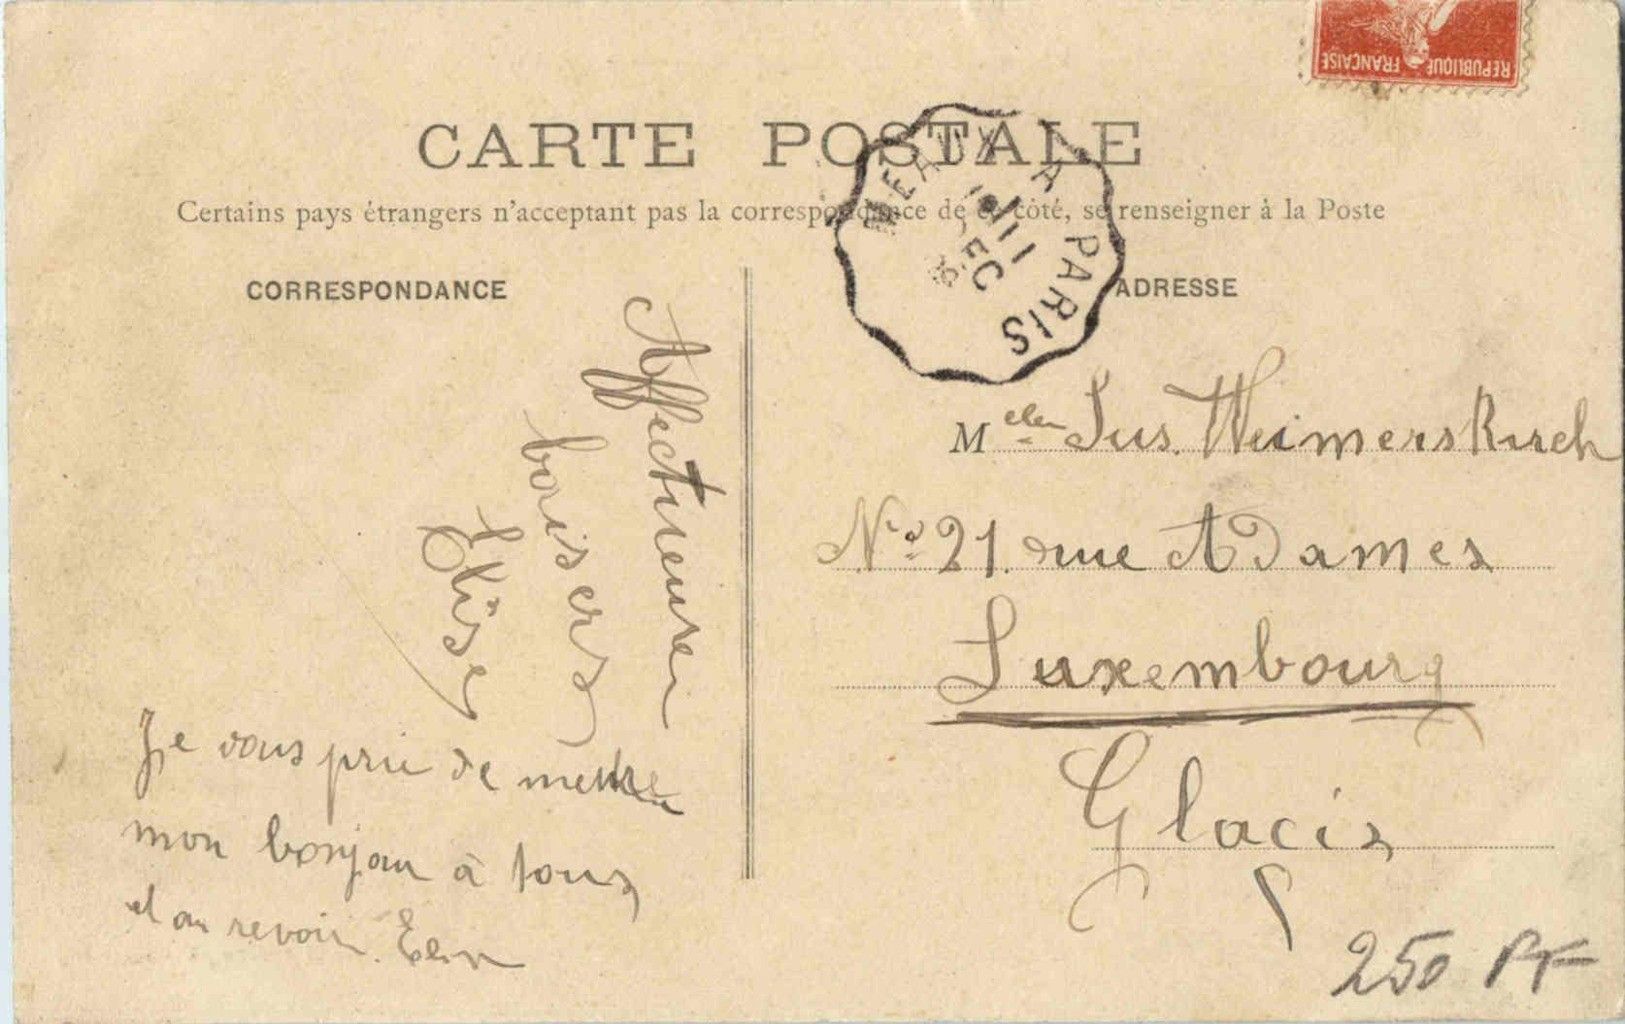 REPUBLIQUE FRANÇAISE
CARTE POSTALE
Certains pays étrangers n'acceptant pas la correspondance de ce côté, se renseigner à la Poste
MEAUX A PARIS
11
DEC
CORRESPONDANCE
ADRESSE
Affectueuse
baisers
Elise
Je vous prie de mettre
mon bonjour à tous
et au revoir.
M Weimerskirch
No 21. rue Adames
Luxembourg
Glacis
250